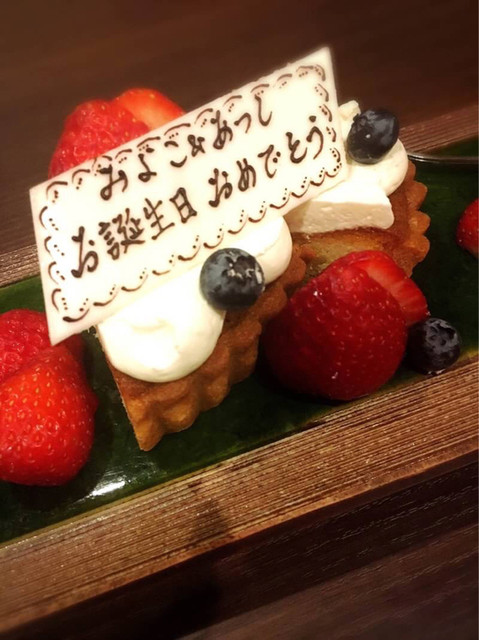 およこ&あつし
お誕生日 おめでとう